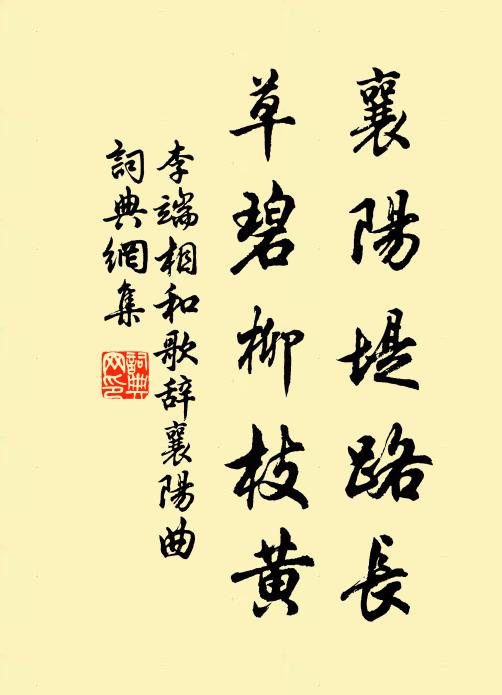 襄陽堤路長
草碧柳枝黄
李端相和歌辞襄陽曲
詞典網集
詞典网印